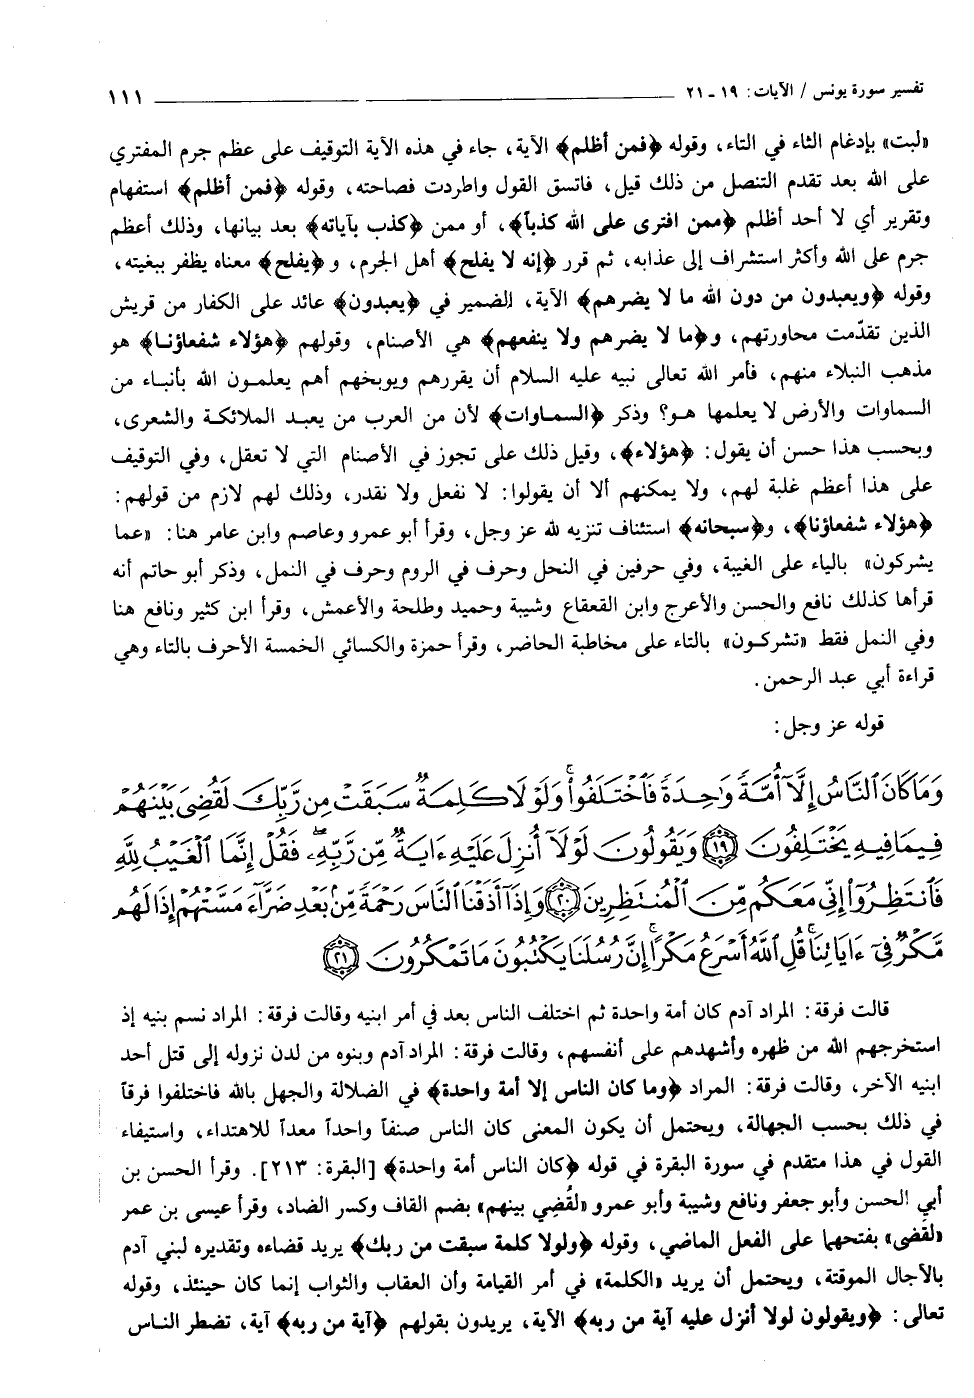 تفسير سورة يونس / الآيات: ١٩ - ٢١ ١١١
«لبت» بإدغام الثاء في التاء، وقوله ﴿فمن أظلم﴾ الآية، جاء في هذه الآية التوقيف على عظم جرم المفتري
على الله بعد تقدم التنصل من ذلك قيل، فاتسق القول واطردت فصاحته، وقوله ﴿فمن أظلم﴾ استفهام
وتقرير أي لا أحد أظلم ﴿ممن افترى على الله كذباً﴾، أو ممن ﴿كذب بآياته﴾ بعد بيانها، وذلك أعظم
جرم على الله وأكثر استشراف إلى عذابه، ثم قرر ﴿إنه لا يفلح﴾ أهل الجرم، و ﴿يفلح﴾ معناه يظفر ببغيته،
وقوله ﴿ويعبدون من دون الله ما لا يضرهم﴾ الآية، الضمير في ﴿يعبدون﴾ عائد على الكفار من قريش
الذين تقدّمت محاورتهم، و﴿ما لا يضرهم ولا ينفعهم﴾ هي الأصنام، وقولهم ﴿هؤلاء شفعاؤنا﴾ هو
مذهب النبلاء منهم، فأمر الله تعالى نبيه عليه السلام أن يقررهم ويوبخهم أهم يعلمون الله بأنباء من
السماوات والأرض لا يعلمها هو؟ وذكر ﴿السماوات﴾ لأن من العرب من يعبد الملائكة والشعرى،
وبحسب هذا حسن أن يقول: ﴿هؤلاء﴾، وقيل ذلك على تجوز في الأصنام التي لا تعقل، وفي التوقيف
على هذا أعظم غلبة لهم، ولا يمكنهم ألا أن يقولوا: لا نفعل ولا نقدر، وذلك لهم لازم من قولهم:
﴿هؤلاء شفعاؤنا﴾، و﴿سبحانه﴾ استئناف تنزيه لله عز وجل، وقرأ أبو عمرو وعاصم وابن عامر هنا: «عما
يشركون» بالياء على الغيبة، وفي حرفين في النحل وحرف في الروم وحرف في النمل، وذكر أبو حاتم أنه
قرأها كذلك نافع والحسن والأعرج وابن القعقاع وشيبة وحميد وطلحة والأعمش، وقرأ ابن كثير ونافع هنا
وفي النمل فقط «تشركون» بالتاء على مخاطبة الحاضر، وقرأ حمزة والكسائي الخمسة الأحرف بالتاء وهي
قراءة أبي عبد الرحمن.
قوله عز وجل:
وَمَا كَانَ ٱلنَّاسُ إِلَّآ أُمَّةً وَٰحِدَةً فَٱخْتَلَفُوا۟ ۚ وَلَوْلَا كَلِمَةٌ سَبَقَتْ مِن رَّبِّكَ لَقُضِىَ بَيْنَهُمْ
فِيمَا فِيهِ يَخْتَلِفُونَ ١٩ وَيَقُولُونَ لَوْلَآ أُنزِلَ عَلَيْهِ ءَايَةٌ مِّن رَّبِّهِۦ ۖ فَقُلْ إِنَّمَا ٱلْغَيْبُ لِلَّهِ
فَٱنتَظِرُوٓا۟ إِنِّى مَعَكُم مِّنَ ٱلْمُنتَظِرِينَ ٢٠ وَإِذَآ أَذَقْنَا ٱلنَّاسَ رَحْمَةً مِّنۢ بَعْدِ ضَرَّآءَ مَسَّتْهُمْ إِذَا لَهُم
مَّكْرٌ فِىٓ ءَايَاتِنَا ۚ قُلِ ٱللَّهُ أَسْرَعُ مَكْرًا ۚ إِنَّ رُسُلَنَا يَكْتُبُونَ مَا تَمْكُرُونَ ٢١
قالت فرقة: المراد آدم كان أمة واحدة ثم اختلف الناس بعد في أمر ابنيه وقالت فرقة: المراد نسم بنيه إذ
استخرجهم الله من ظهره وأشهدهم على أنفسهم، وقالت فرقة: المراد آدم وبنوه من لدن نزوله إلى قتل أحد
ابنيه الآخر، وقالت فرقة: المراد ﴿وما كان الناس إلا أمة واحدة﴾ في الضلالة والجهل بالله فاختلفوا فرقاً
في ذلك بحسب الجهالة، ويحتمل أن يكون المعنى كان الناس صنفاً واحداً معداً للاهتداء، واستيفاء
القول في هذا متقدم في سورة البقرة في قوله ﴿كان الناس أمة واحدة﴾ [البقرة: ٢١٣]. وقرأ الحسن بن
أبي الحسن وأبو جعفر ونافع وشيبة وأبو عمرو «لقُضِي بينهم» بضم القاف وكسر الضاد، وقرأ عيسى بن عمر
«لقَضى» بفتحهما على الفعل الماضي، وقوله ﴿ولولا كلمة سبقت من ربك﴾ يريد قضاءه وتقديره لبني آدم
بالآجال الموقتة، ويحتمل أن يريد «الكلمة» في أمر القيامة وأن العقاب والثواب إنما كان حينئذ، وقوله
تعالى: ﴿ويقولون لولا أنزل عليه آية من ربه﴾ الآية، يريدون بقولهم ﴿آية من ربه﴾ آية، تضطر الناس